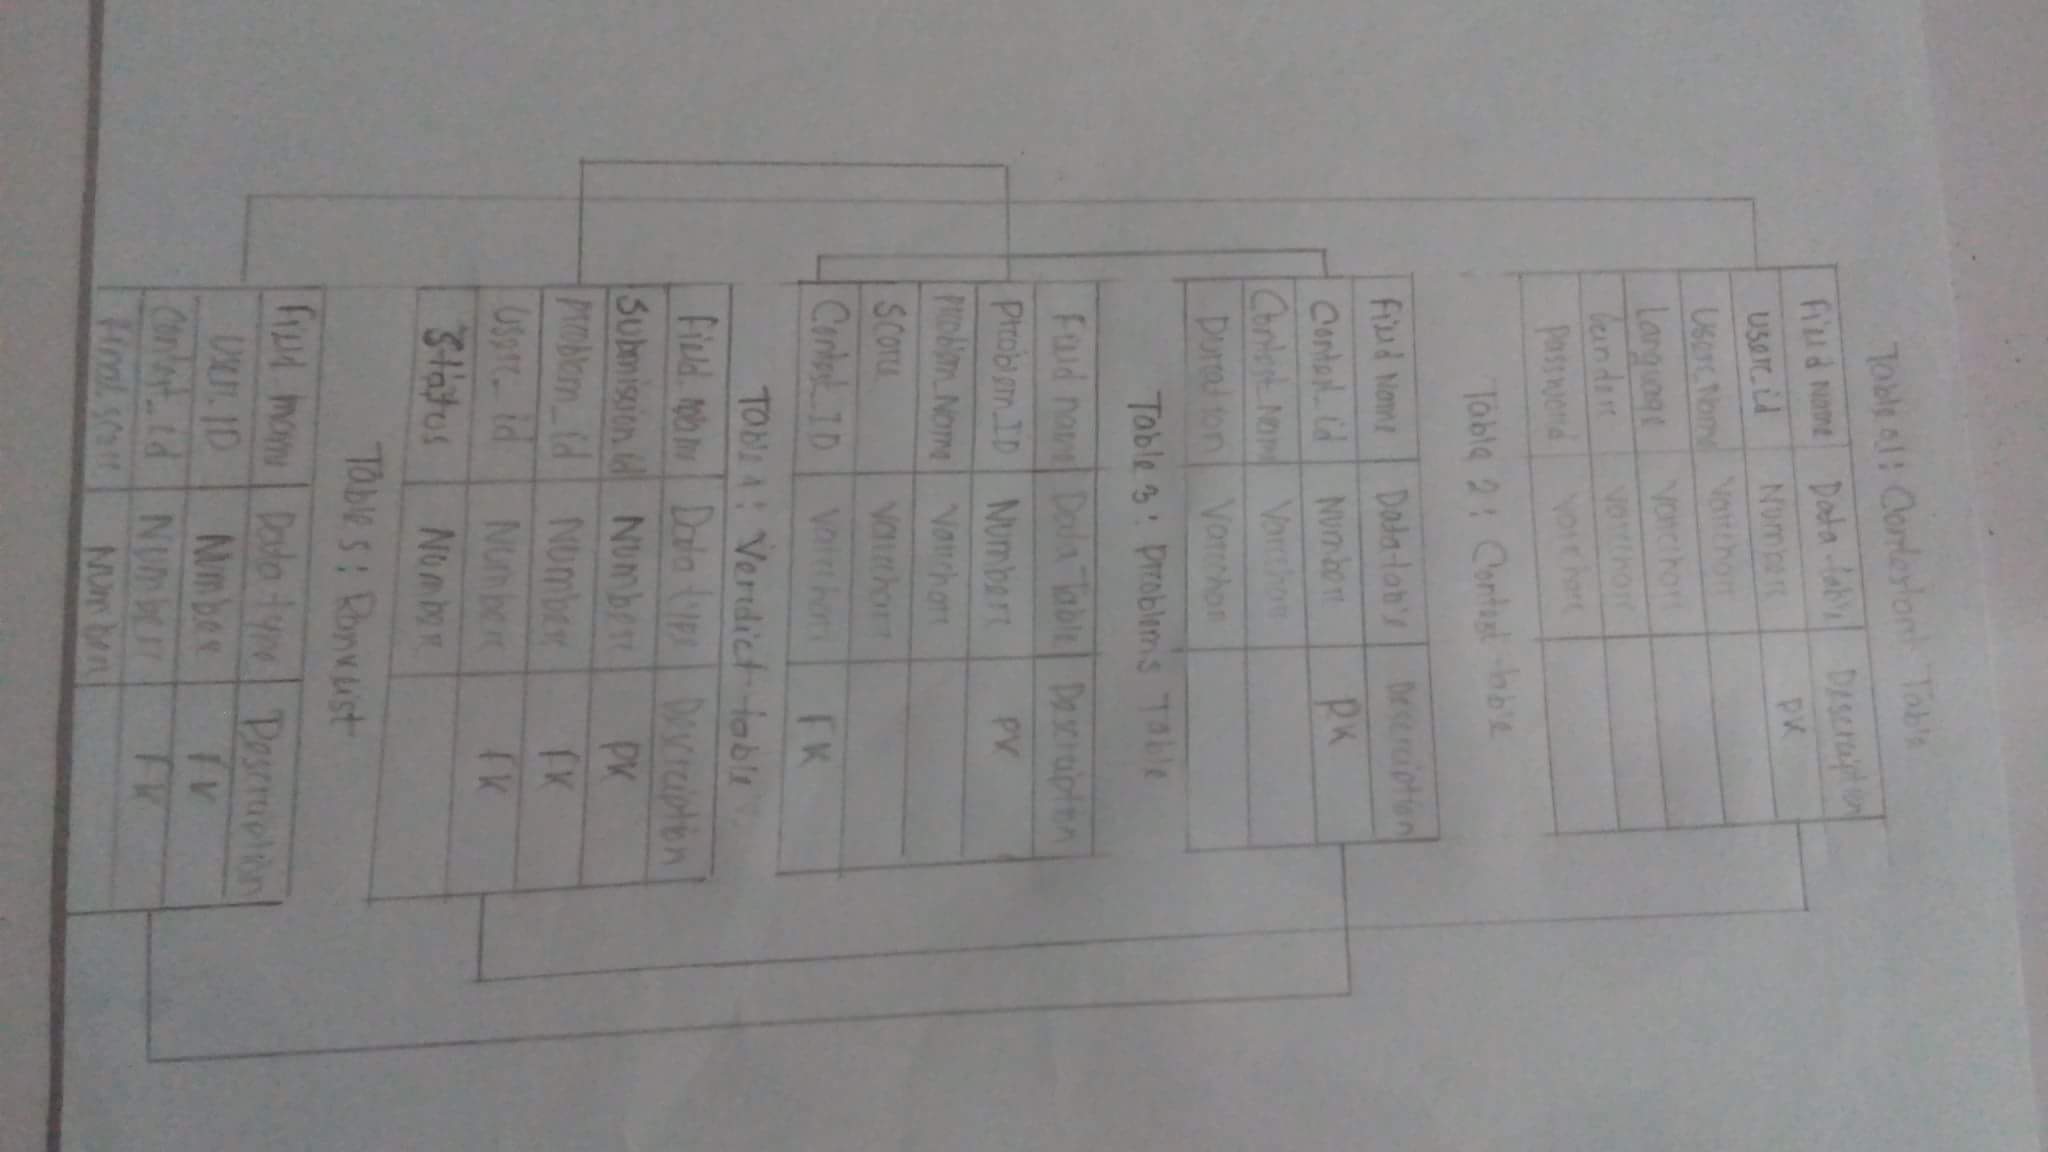 Table 01: Contestant Table
Field Name Data-table Description
User_id Number PK
User_Name Varchar
Language Varchar
Gender Varchar
Password Varchar
Table 2: Contest table
Field Name Data-table Description
Contest_id Number PK
Contest_Name Varchar
Duration Varchar
Table 3: Problems Table
Field name Data Table Description
Problem_ID Number PK
Problem_Name Varchar
Score Varchar
Contest_ID Varchar FK
Table 4: Verdict table
Field name Data type Description
Submission_id Number PK
Problem_id Number FK
User_id Number FK
Status Number
Table 5: Ranklist
Field name Data type Description
User_ID Number FK
Contest_id Number FK
Final score Number